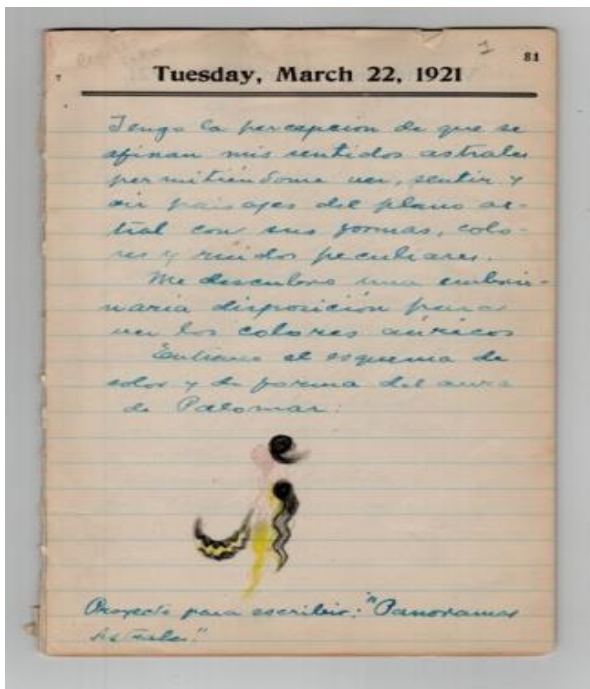 81
Tuesday, March 22, 1921
Tengo la percepcion de que se
afinan mis sentidos astrales
permitiéndome ver, sentir y
oir paisajes del plano as-
tral con sus formas, colo-
res y ruidos peculiares.
Me descubro una embrio-
naria disposición para
ver los colores aúricos
el esquema de
color y de forma del aura
de Palomar:
Proyecto para escribir: "Panoramas
Astrales"